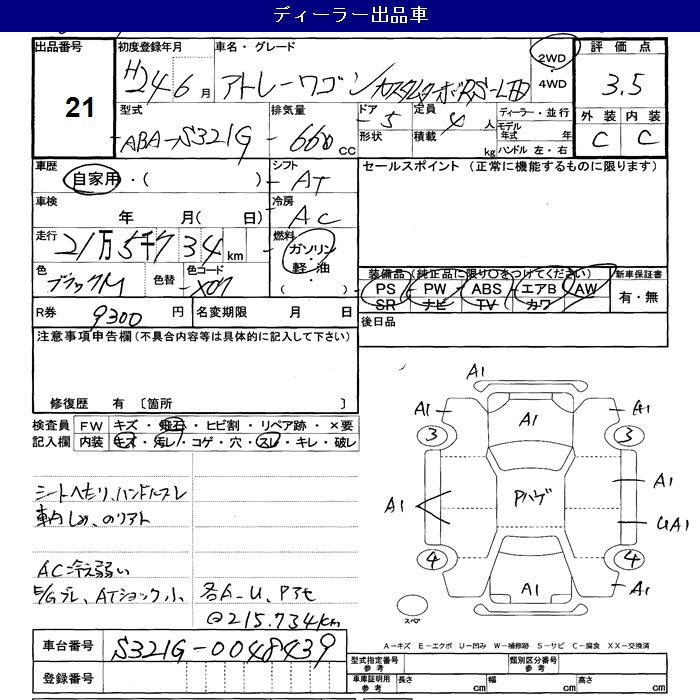 ディーラー出品車
出品番号 21
初度登録年月 H24 6月
車名・グレード アトレーワゴン カスタムターボRS-LTD
2WD・4WD
評価点 3.5
外装 C 内装 C
型式 ABA-S321G
排気量 660 cc
ドア 5 形状
定員 4人 積載 kg
ディーラー・並行
モデル年式 年
ハンドル 左・右
車歴 自家用・( )
シフト AT
セールスポイント (正常に機能するものに限ります)
車検 年 月( 日)
冷房 AC
走行 21万5千734km
燃料 ガソリン・軽油・( )
色 ブラックM 色替 色コード X07
装備品(純正品に限り○をつけてください)
PS・PW・ABS・エアB・AW
SR ナビ TV カワ
新車保証書 有・無
R券 9300円 名変期限 月 日
後日品
注意事項申告欄(不具合内容等は具体的に記入して下さい)
修復歴 有 [箇所 ]
検査員記入欄
FW キズ・飛石・ヒビ割・リペア跡・×要
内装 キズ・汚レ・コゲ・穴・スレ・キレ・破レ
シートヘタリ、ハンドルスレ
車内しみ、のりアト
AC冷え弱い
E/Gブレ、ATショック小、
各A_U、Pアセ
@215.734km
A1
A1 A1 A1
3 3
Pハゲ
A1 A1
UA1
4 4
A1 A1
スペア
A-キズ E-エクボ U-凹み W-補修跡 S-サビ C-腐食 XX-交換済
車台番号 S321G-0048439
登録番号
型式指定番号 参考 類別区分番号 参考
車庫証明用 参考 長さ cm 幅 cm 高さ cm